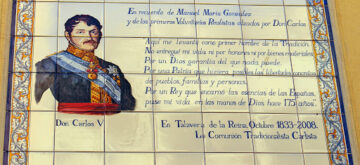 En recuerdo de Manuel María González
y de los primeros Voluntarios Realistas alzados por Don Carlos
Aquí me levanté como primer hombre de la Tradición.
No entregué mi vida ni por honores ni por bienes materiales
Por un Dios garantía del que nada puede.
Por una Patria que las libertades concretas
de pueblos, familias y personas.
Por un Rey que encarna las esencias de las Españas,
puse mi vida en las manos de Dios hace 175 años".
Don Carlos V
En Talavera de la Reina, Octubre 1833-2008.
La Comunión Tradicionalista Carlista